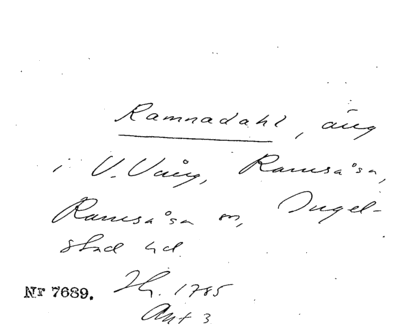 Ramnadahl, äng
i V. Vång, Ramsåsa,
Ramsåsa sn, Ingel-
stad hd.
Nr 7689. 1785
Akt 3